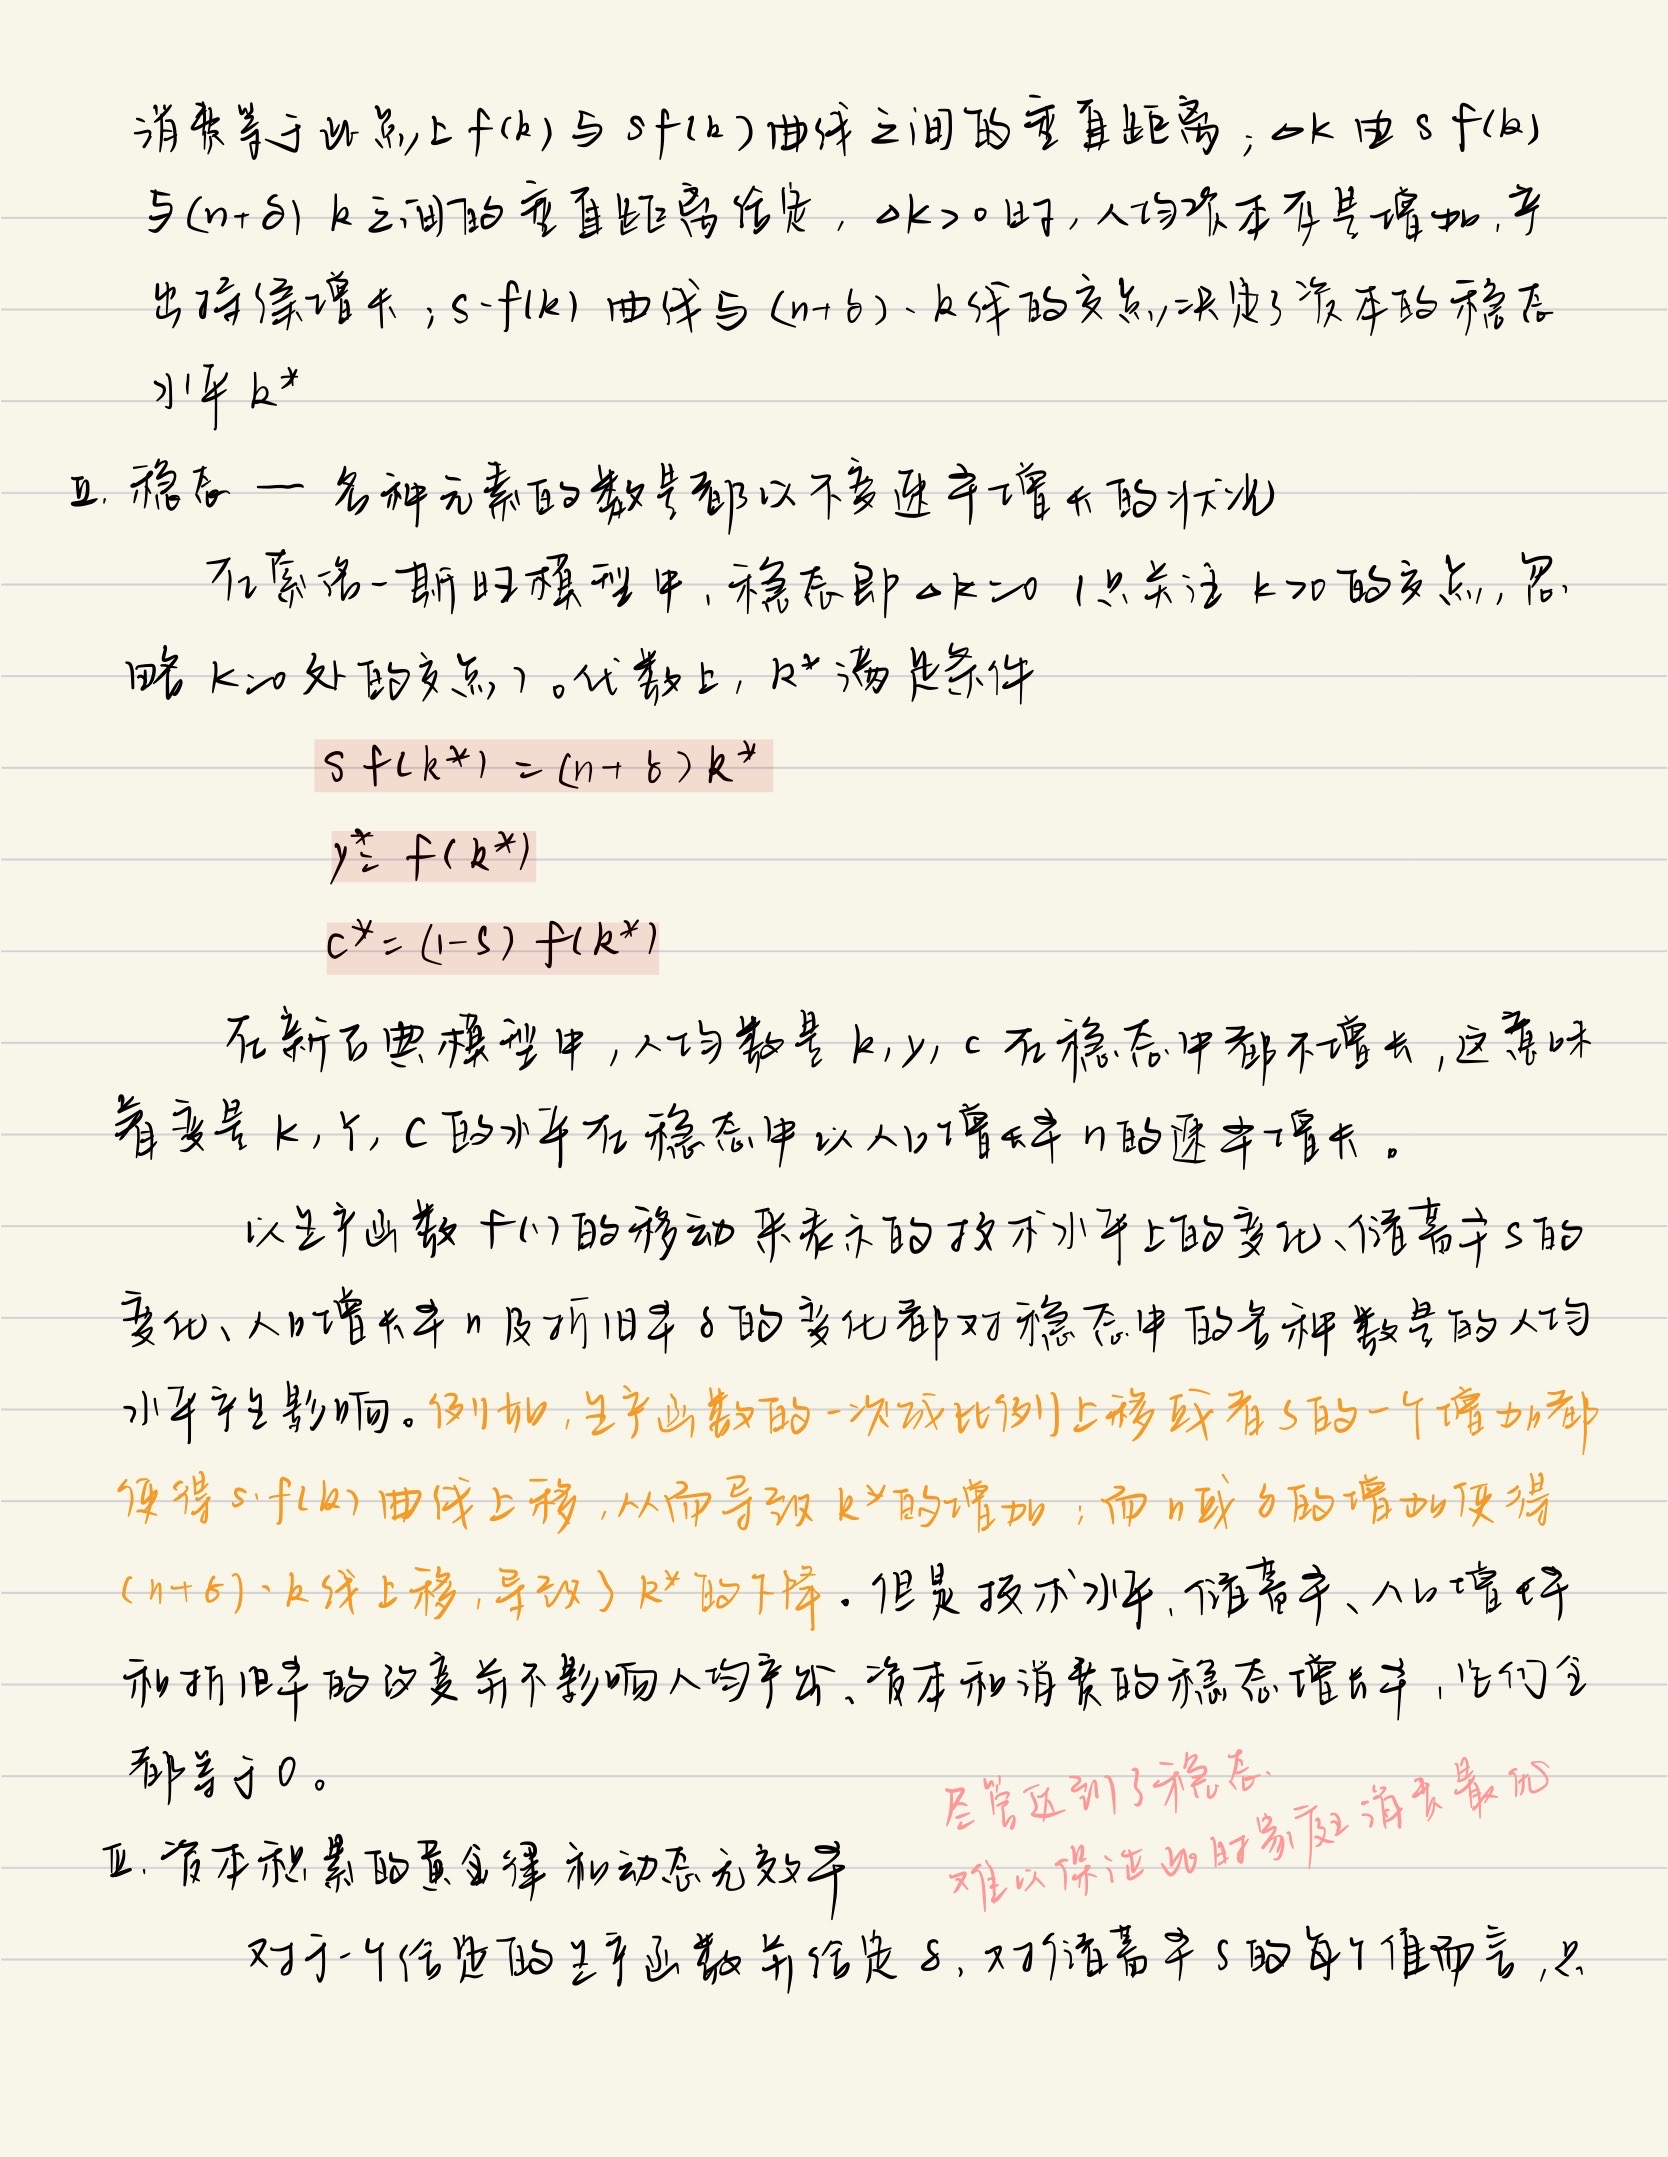 消费等于此点上f(k)与sf(k)曲线之间的垂直距离；△k由s f(k)
与(n+δ) k之间的垂直距离给定，△k>0时，人均资本存量增加，产
出持续增长；s·f(k) 曲线与(n+δ)·k线的交点决定了资本的稳态
水平 k*
II. 稳态 — 各种元素的数量都以不变速率增长的状况
在索洛-斯旺模型中，稳态即△k=0（只关注 k>0的交点，忽
略 k=0处的交点）。代数上，k*满足条件
s f(k*) = (n+δ) k*
y* = f(k*)
c* = (1-s) f(k*)
在新古典模型中，人均数量 k, y, c 在稳态中都不增长，这意味
着变量 K, Y, C 的水平在稳态中以人口增长率n的速率增长。
以生产函数f(·)的移动来表示的技术水平上的变化、储蓄率s的
变化、人口增长率n及折旧率δ的变化都对稳态中的各种数量的人均
水平产生影响。例如，生产函数的一次成比例上移或者s的一个增加都
使得s·f(k) 曲线上移，从而导致 k*的增加；而n或δ的增加使得
(n+δ)·k线上移，导致了k*的下降。但是技术水平、储蓄率、人口增长率
和折旧率的改变并不影响人均产出、资本和消费的稳态增长率，它们全
都等于0。
尽管达到了稳态
难以保证此时家庭消费最优
III. 资本积累的黄金律和动态无效率
对于一个给定的生产函数并给定δ，对储蓄率s的每个值而言，只